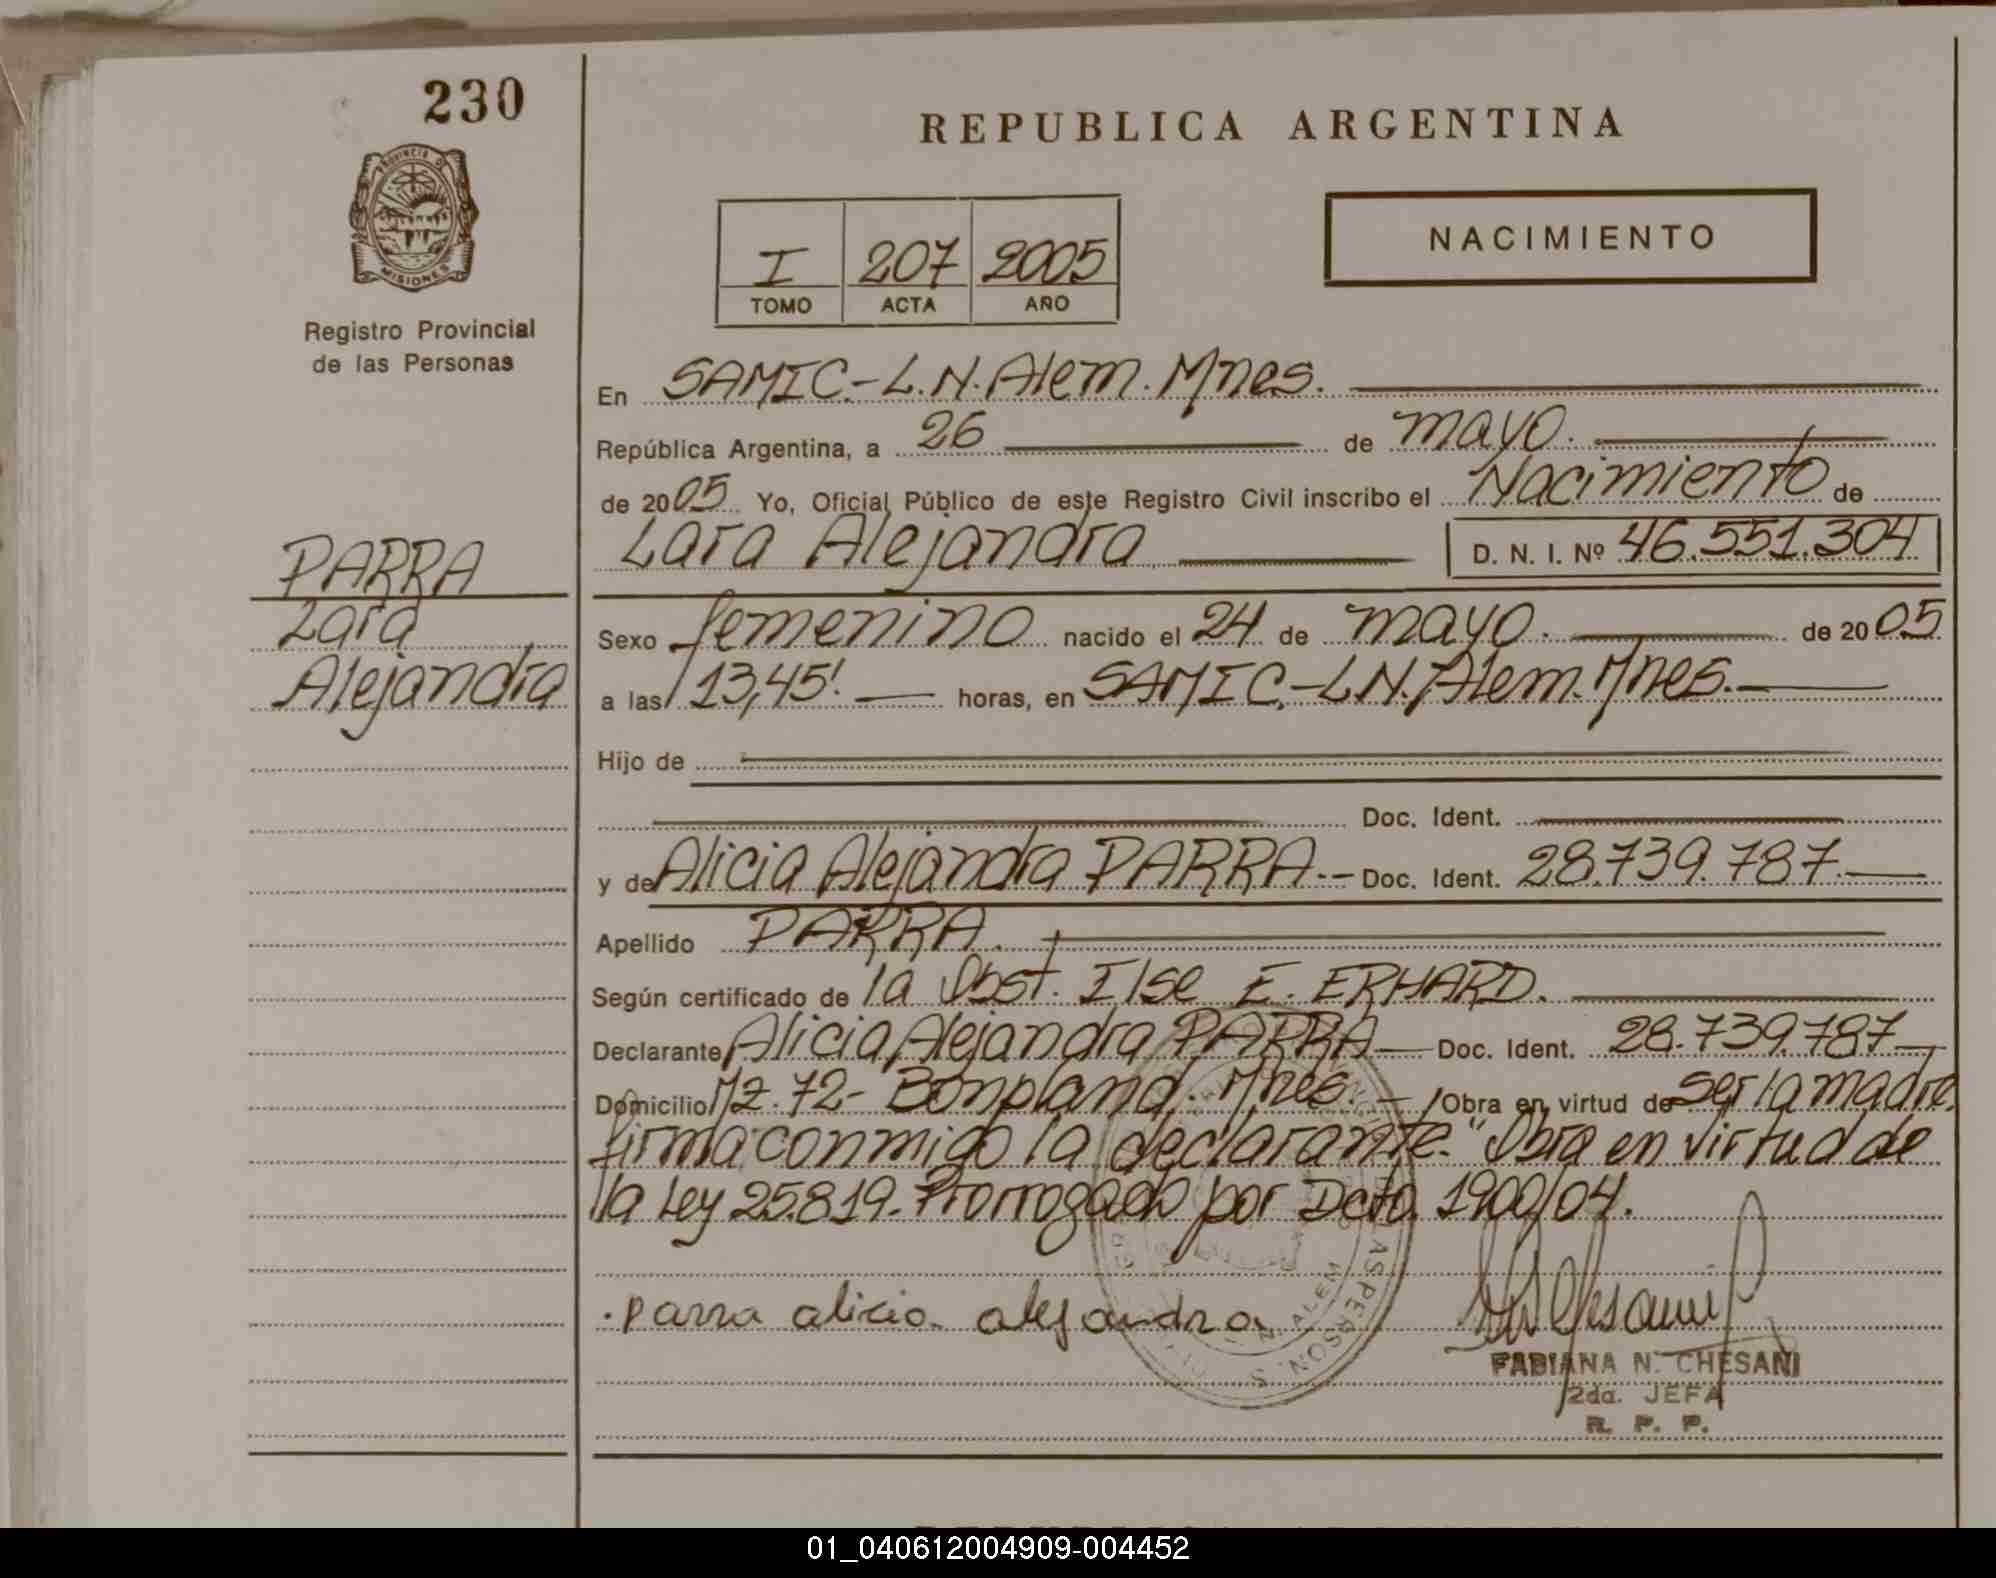 230
PROVINCIA DE
MISIONES
Registro Provincial
de las Personas
REPUBLICA ARGENTINA
I 207 2005
TOMO ACTA AÑO
NACIMIENTO
En SAMIC.-L.N.Alem.Mnes.
República Argentina, a 26 de mayo.
de 2005 Yo, Oficial Público de este Registro Civil inscribo el Nacimiento de
Lara Alejandra D. N. I. Nº 46.551.304
PARRA
Lara
Alejandra
Sexo femenino nacido el 24 de mayo. de 2005
a las 13,45'. horas, en SAMIC.-L.N.Alem.Mnes.-
Hijo de
Doc. Ident.
y de Alicia Alejandra PARRA.- Doc. Ident. 28.739.787.-
Apellido PARRA.
Según certificado de la Obst. Ilse E. ERHARD.
Declarante Alicia Alejandra PARRA- Doc. Ident. 28.739.787-
Domicilio Mz.72- Bonpland.Mnes. - Obra en virtud de ser la madre.
firma conmigo la declarante." Obra en virtud de
la Ley 25.819.-Prorrogado por Dcto. 1900/04.
.parra alicia alejandra
FABIANA N. CHESANI
2da. JEFA
R. P. P.
01_040612004909-004452